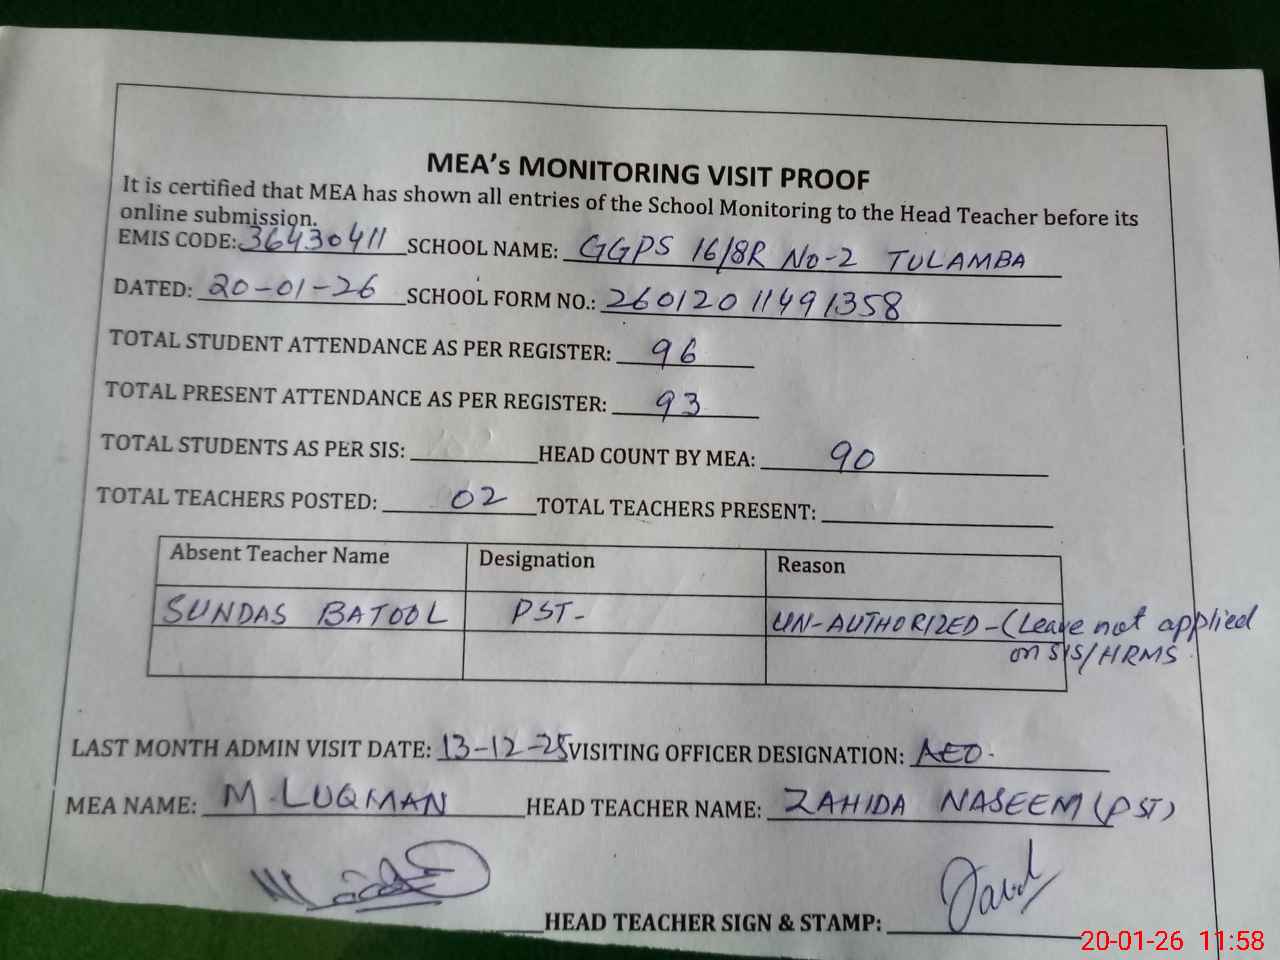 MEA's MONITORING VISIT PROOF
It is certified that MEA has shown all entries of the School Monitoring to the Head Teacher before its
online submission.
EMIS CODE: 36430411 SCHOOL NAME: GGPS 16/8R No-2 TULAMBA
DATED: 20-01-26 SCHOOL FORM NO.: 26012011491358
TOTAL STUDENT ATTENDANCE AS PER REGISTER: 96
TOTAL PRESENT ATTENDANCE AS PER REGISTER: 93
TOTAL STUDENTS AS PER SIS: HEAD COUNT BY MEA: 90
TOTAL TEACHERS POSTED: 02 TOTAL TEACHERS PRESENT:
Absent Teacher Name Designation Reason
SUNDAS BATOOL PST- UN-AUTHORIZED-(Leave not applied
on SIS/HRMS.
LAST MONTH ADMIN VISIT DATE: 13-12-25 VISITING OFFICER DESIGNATION: AEO.
MEA NAME: M.LUQMAN HEAD TEACHER NAME: ZAHIDA NASEEM (PST)
HEAD TEACHER SIGN & STAMP:
20-01-26 11:58